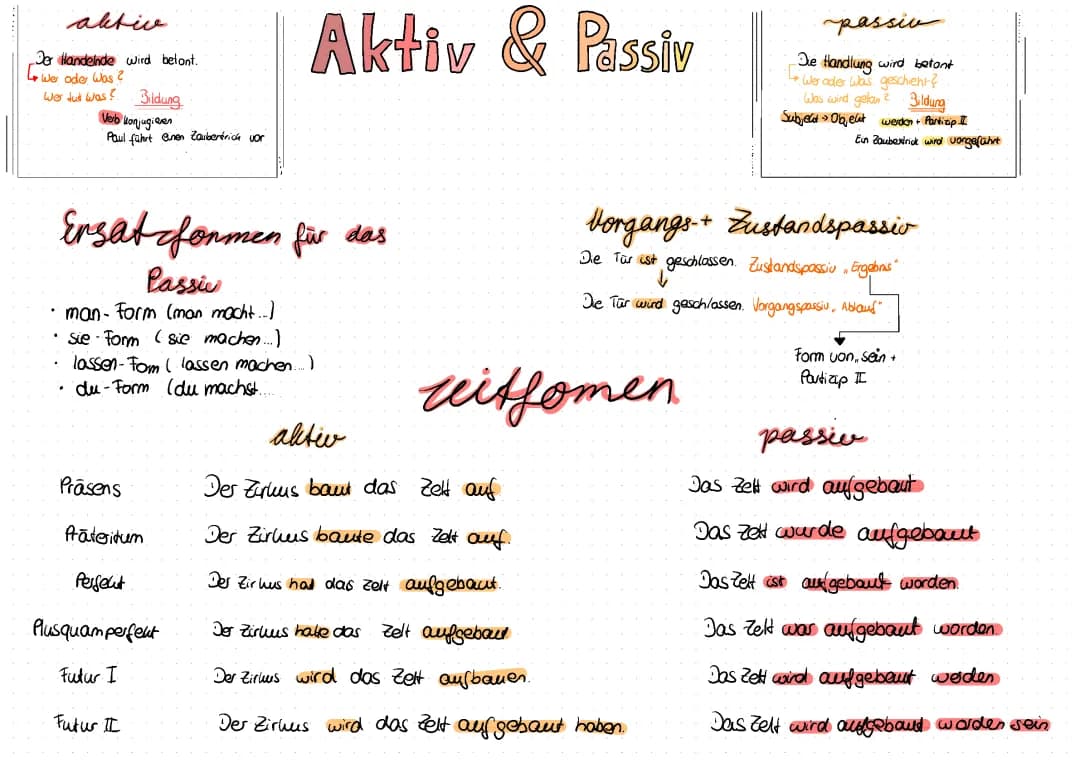 Aktiv & Passiv
aktiv
Der Handelnde wird betont.
Wer oder Was?
Wer tut Was? Bildung
Verb konjugieren
Paul führt einen Zaubertrick vor
passiv
Die Handlung wird betont
Wer oder Was geschieht?
Was wird getan? Bildung
Subjekt → Objekt werden + Partizip II
Ein Zaubertrick wird vorgeführt
Ersatzformen für das
Passiv
• man-Form (man macht...)
• sie-Form (sie machen...)
• lassen-Fom (lassen machen...)
• du-Form (du machst....
Vorgangs-+ Zustandspassiv
Die Tür ist geschlossen. Zustandspassiv „Ergebnis"
Die Tür wird geschlossen. Vorgangspassiv „Ablauf"
Form von „sein +
Partizip II
zeitfomen
aktiv passiv
Präsens Der Zirkus baut das Zelt auf Das Zelt wird aufgebaut
Präteritum Der Zirkus baute das Zelt auf. Das Zelt wurde aufgebaut
Perfekt Der Zirkus hat das Zelt aufgebaut. Das Zelt ist aufgebaut worden.
Plusquamperfekt Der Zirkus hatte das Zelt aufgebaut Das Zelt war aufgebaut worden.
Futur I Der Zirkus wird das Zelt aufbauen. Das Zelt wird aufgebaut werden
Futur II Der Zirkus wird das Zelt aufgebaut haben. Das Zelt wird aufgebaut worden sein